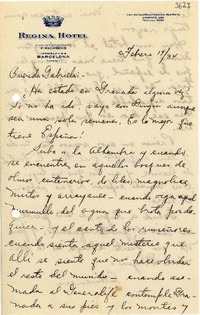 3627
REGINA HOTEL
BARCELONA
Febrero 19/34
Querida Gabriela:
Ha estado en Granada alguna vez?
Si no ha ido, vaya en Junio aunque
sea una sola semana. Es lo mejor que
tiene España!
Suba a la Alhambra y cuando
se encuentre en aquellos bosques de
olmos centenarios, de lilas, magnolias,
mirtos y arrayanes — cuando oiga aquel
murmullo del agua que brota por do-
quier — y el canto de los ruiseñores,
cuando sienta aquel misterio que
allí se siente que nos hace olvidar
el resto del mundo — cuando aso-
mada al Generalife contemple Gra-
nada a sus pies y los montes y